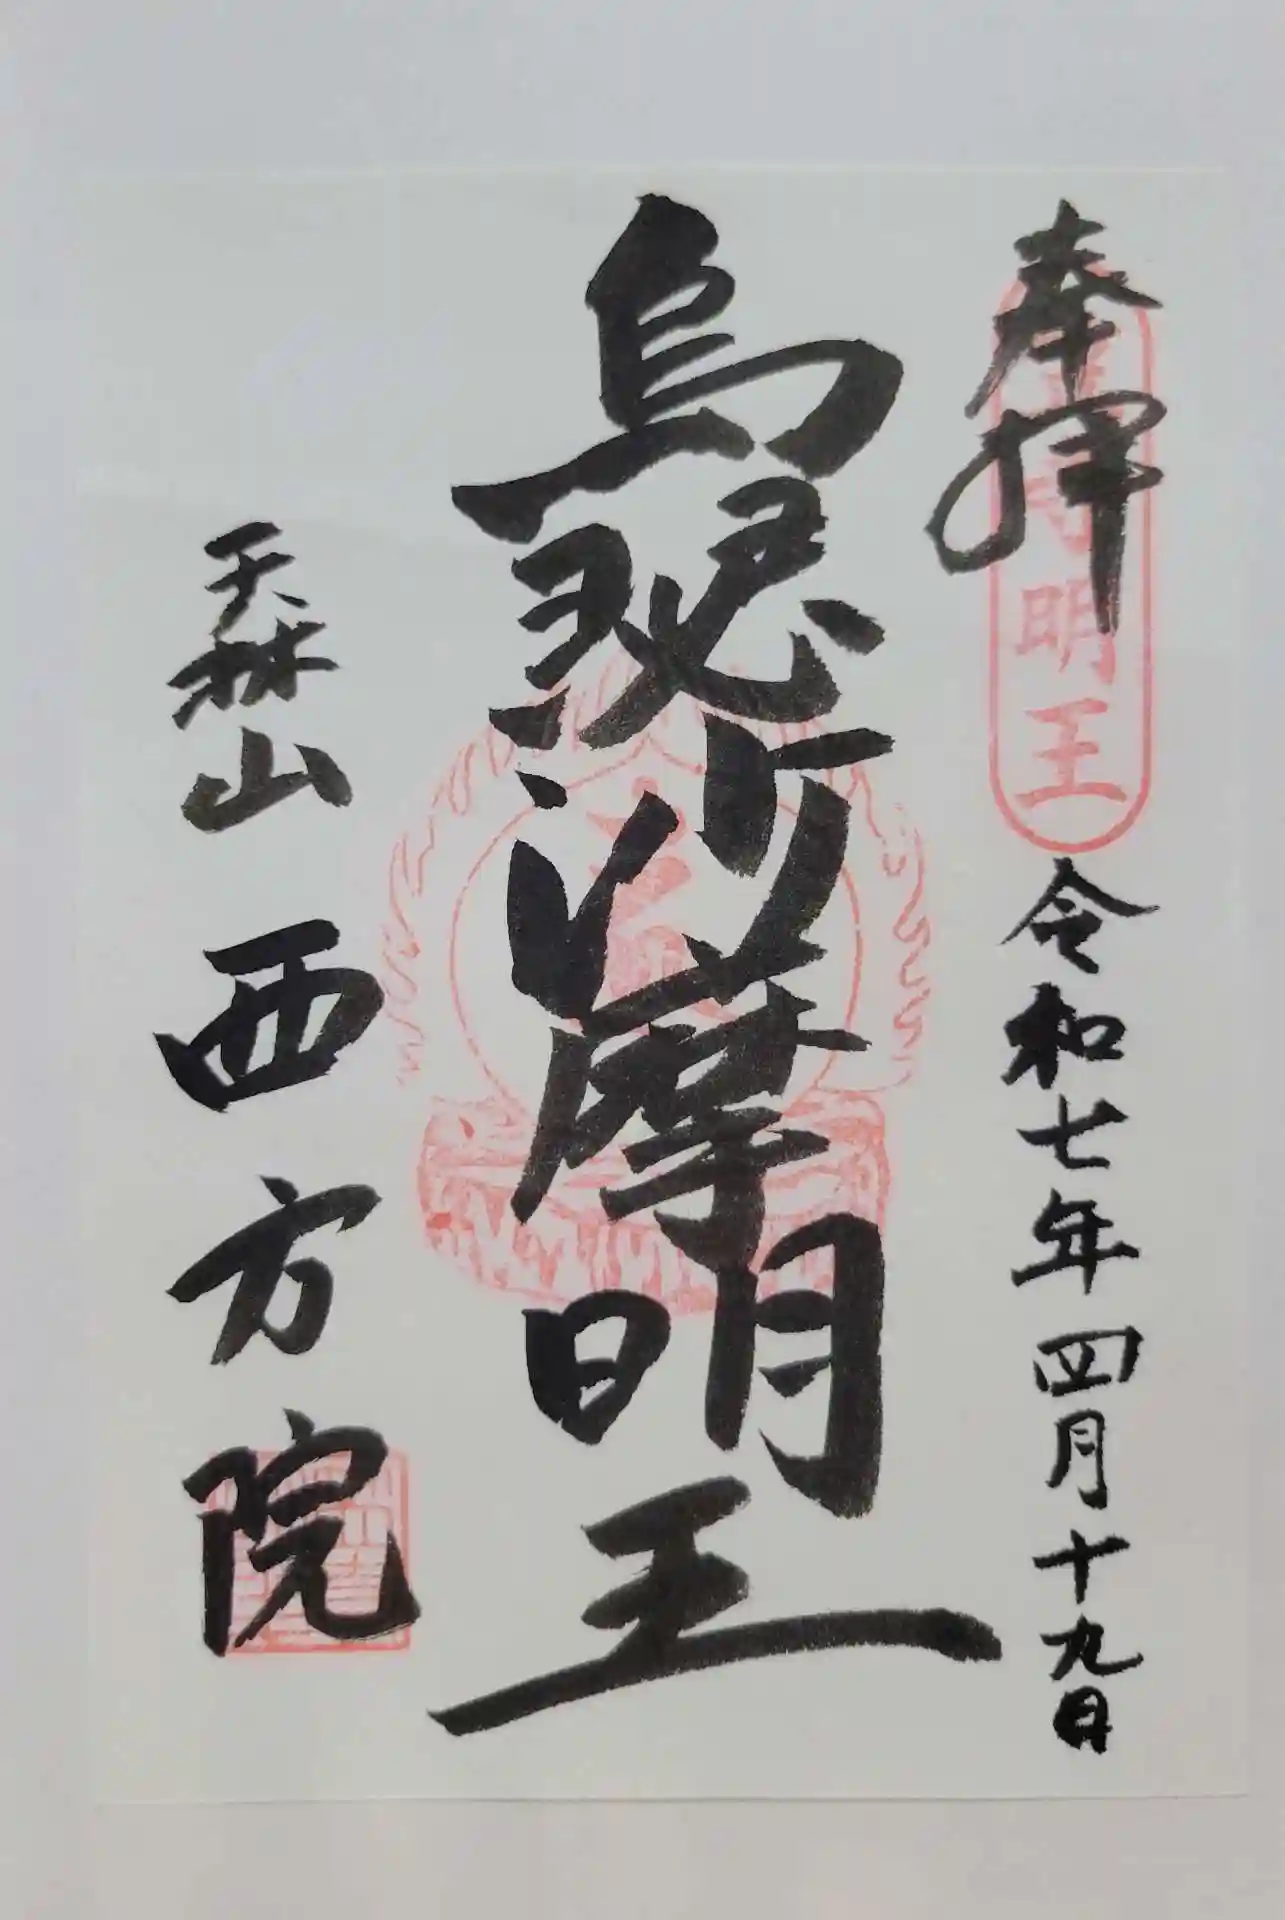 奉拝
明王
令和七年四月十九日
烏瑟沙摩明王
天林山
西方院